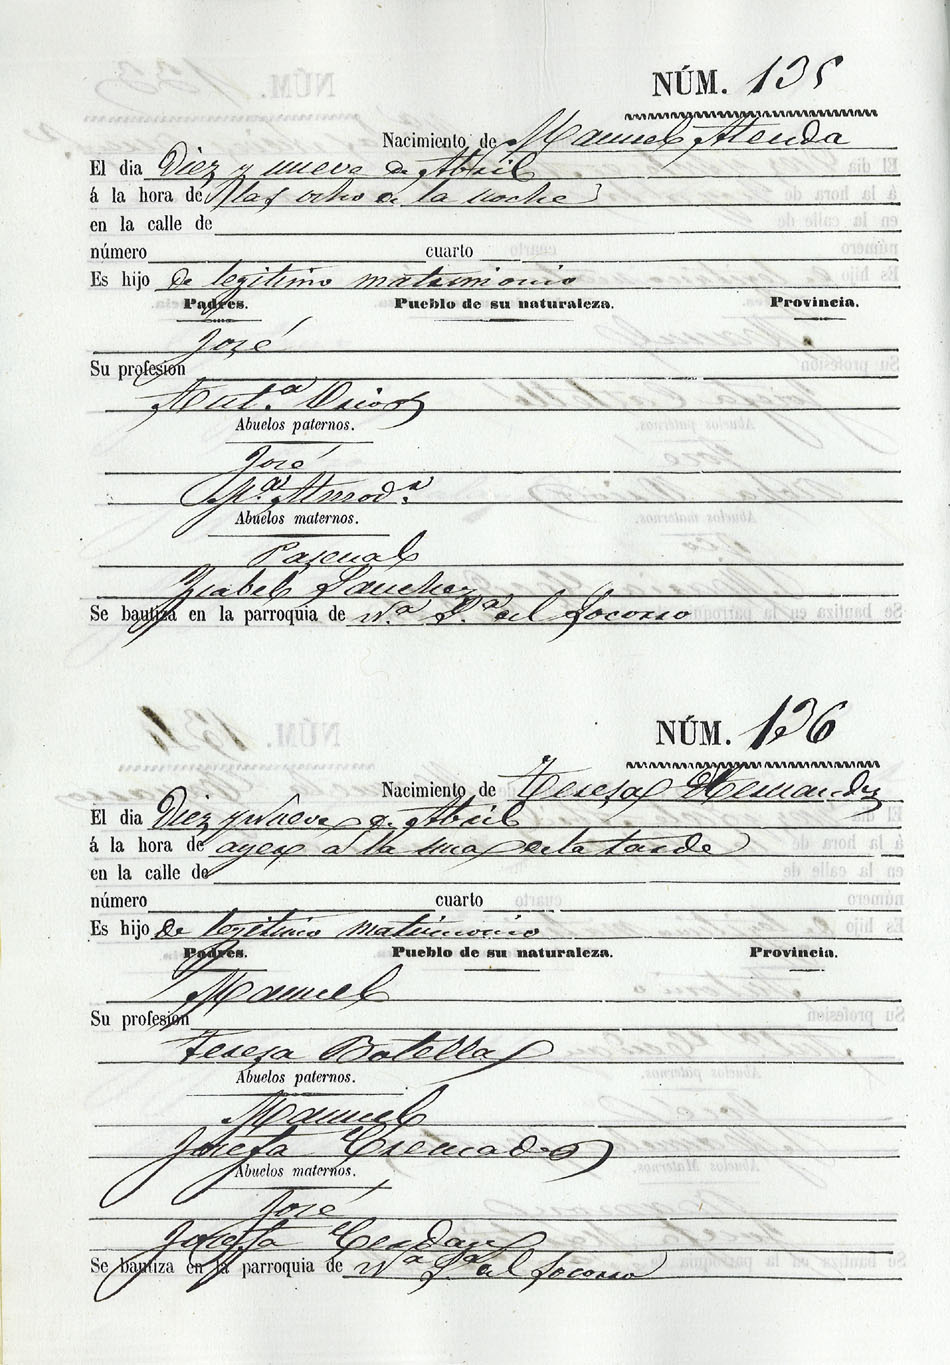 NÚM. 135
Nacimiento de Manuel Atenda
El dia Diez y nueve de Abril
á la hora de las ocho de la noche
en la calle de
número cuarto
Es hijo de legitimo matrimonio
Padres. Pueblo de su naturaleza. Provincia.
José
Su profesion
Ant.ª
Abuelos paternos.
José
M.ª Almod.ª
Abuelos maternos.
Pascual
Isabel Sanchez
Se bautiza en la parroquia de N.ª S.ª del Socorro
NÚM. 136
Nacimiento de Teresa Hernandez
El dia Diez y Nueve de Abril
á la hora de ayer a la una de la tarde
en la calle de
número cuarto
Es hijo de legitimo matrimonio
Padres. Pueblo de su naturaleza. Provincia.
Manuel
Su profesion
Teresa Botella
Abuelos paternos.
Manuel
Josefa Cremades
Abuelos maternos.
José
Josefa
Se bautiza en la parroquia de N.ª S.ª del Socorro